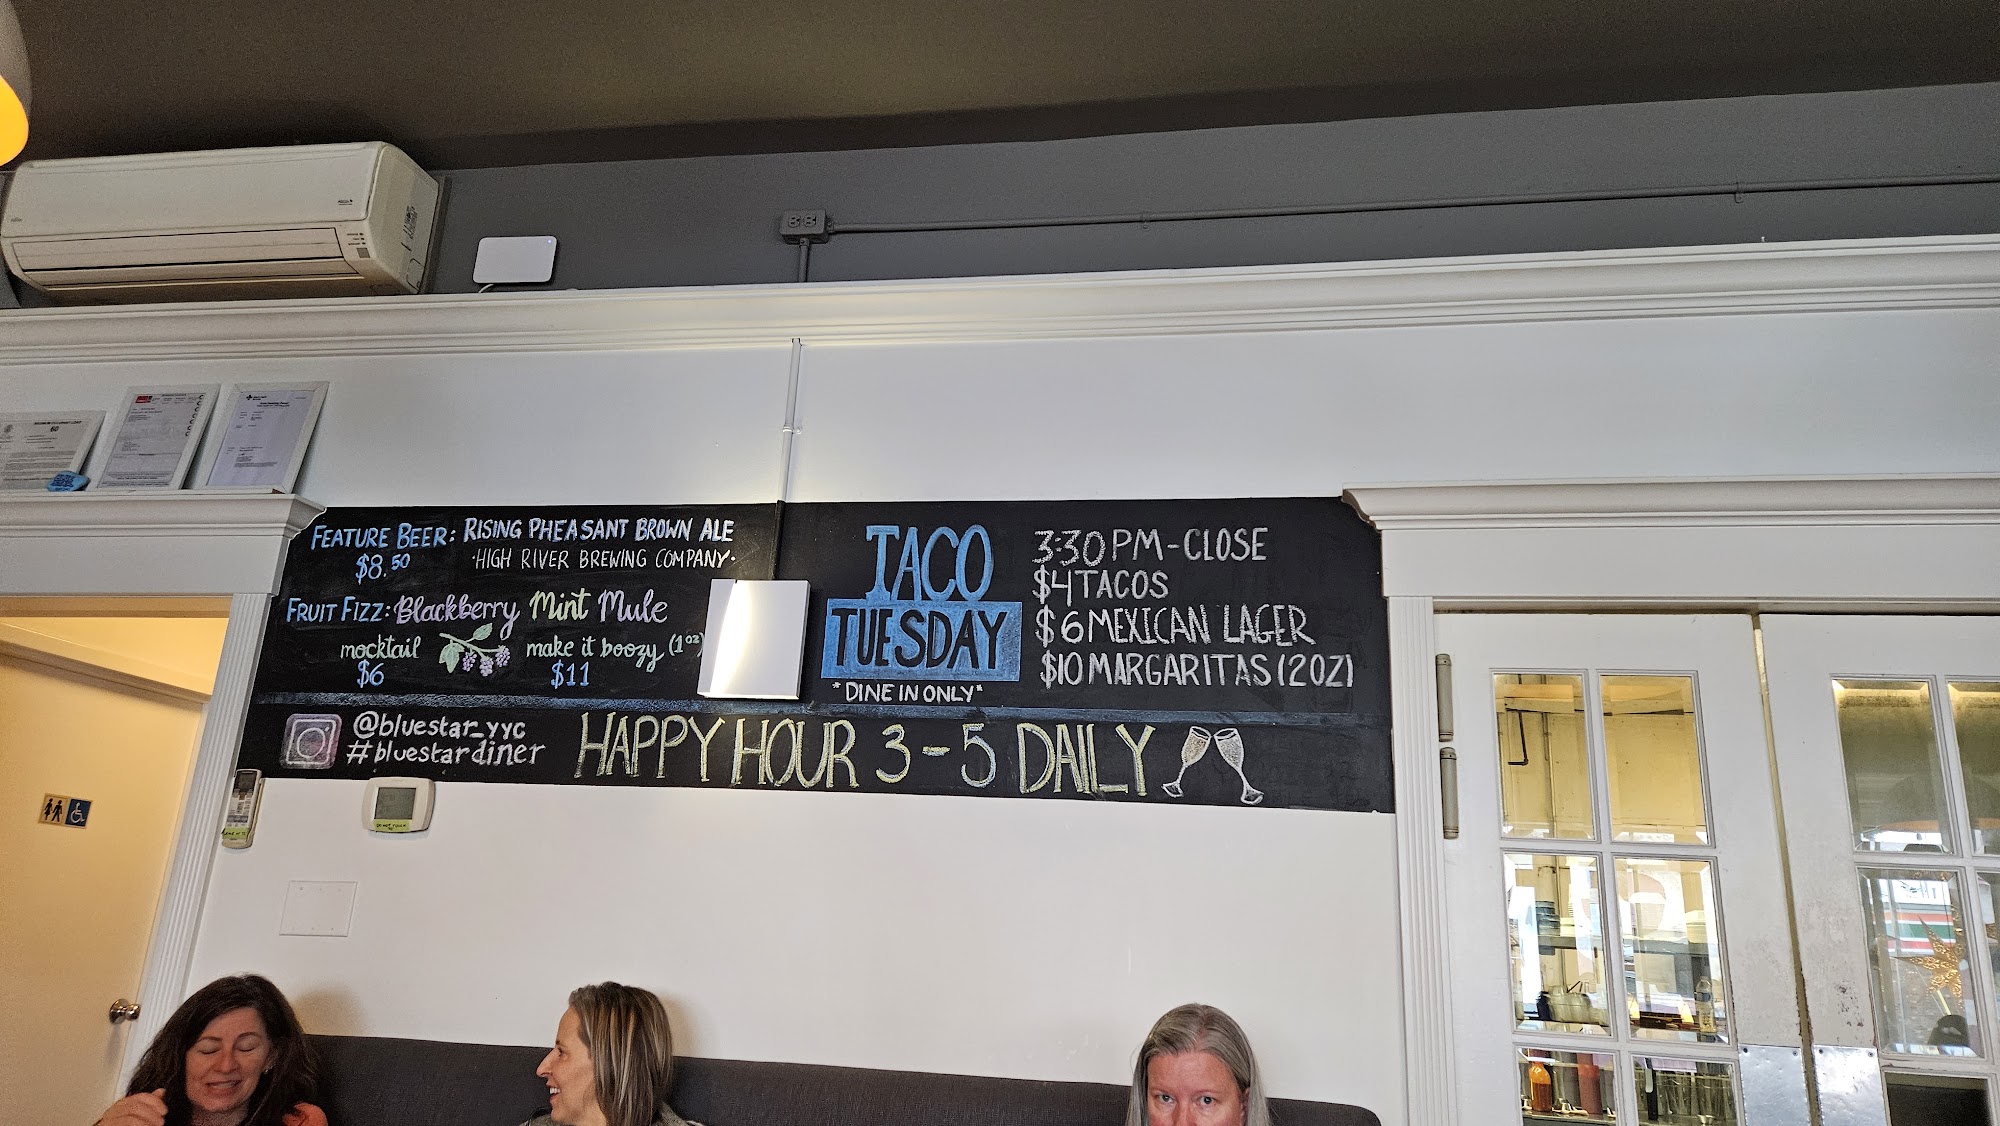 FEATURE BEER: RISING PHEASANT BROWN ALE
$8.50
·HIGH RIVER BREWING COMPANY·
FRUIT FIZZ: Blackberry Mint Mule
mocktail
$6
make it boozy (1oz)
$11
TACO
TUESDAY
*DINE IN ONLY*
3:30PM-CLOSE
$4 TACOS
$6 MEXICAN LAGER
$10 MARGARITAS (2OZ)
@bluestar_yyc
#bluestardiner
HAPPY HOUR 3-5 DAILY